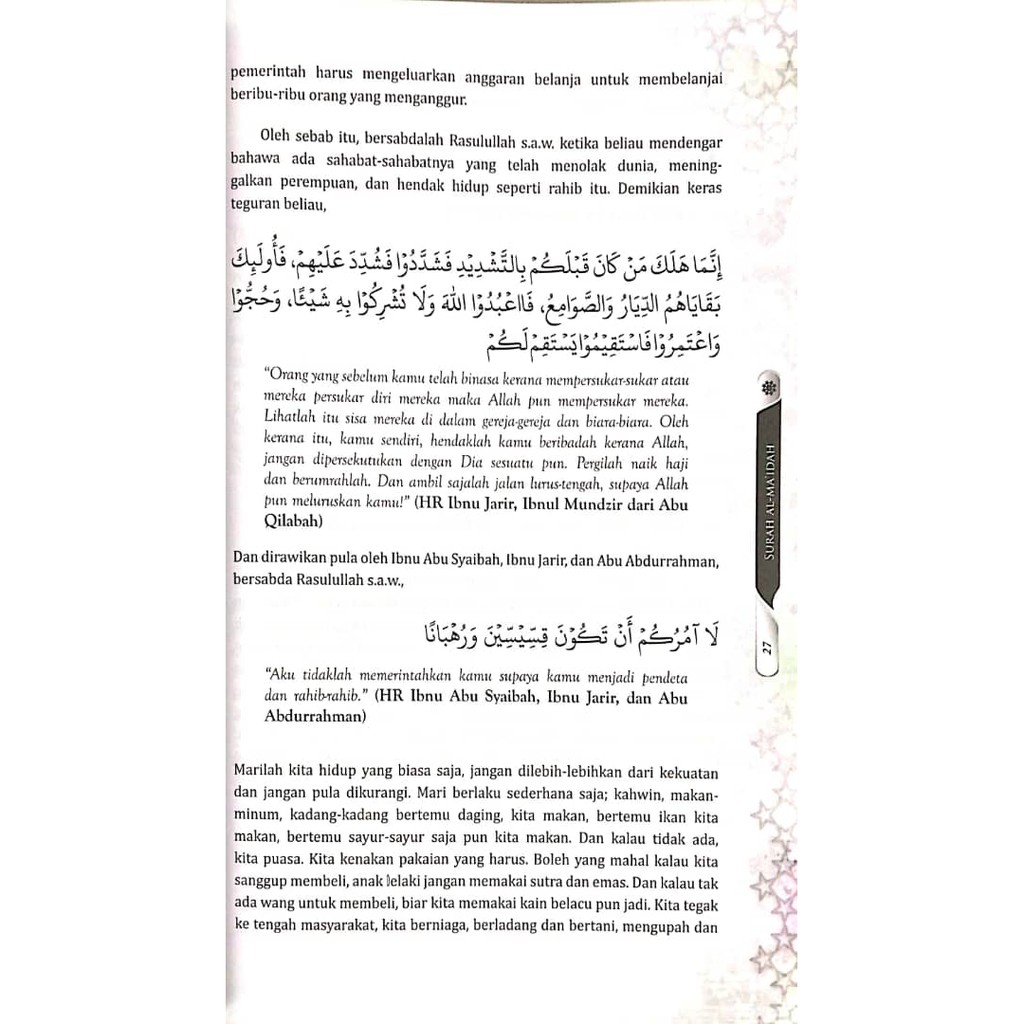 pemerintah harus mengeluarkan anggaran belanja untuk membelanjai
beribu-ribu orang yang menganggur.
Oleh sebab itu, bersabdalah Rasulullah s.a.w. ketika beliau mendengar
bahawa ada sahabat-sahabatnya yang telah menolak dunia, mening-
galkan perempuan, dan hendak hidup seperti rahib itu. Demikian keras
teguran beliau,
إِنَّمَا هَلَكَ مَنْ كَانَ قَبْلَكُمْ بِالتَّشْدِيْدِ فَشَدَّدُوْا فَشُدِّدَ عَلَيْهِمْ، فَأُولَئِكَ
بَقَايَاهُمُ الدِّيَارُ وَالصَّوَامِعُ، فَااعْبُدُوْا اللهَ وَلَا تُشْرِكُوْا بِهِ شَيْئًا، وَحُجُّوْا
وَاعْتَمِرُوْا فَاسْتَقِيْمُوْا يَسْتَقِمْ لَكُمْ
“Orang yang sebelum kamu telah binasa kerana mempersukar-sukar atau
mereka persukar diri mereka maka Allah pun mempersukar mereka.
Lihatlah itu sisa mereka di dalam gereja-gereja dan biara-biara. Oleh
kerana itu, kamu sendiri, hendaklah kamu beribadah kerana Allah,
jangan dipersekutukan dengan Dia sesuatu pun. Pergilah naik haji
dan berumrahlah. Dan ambil sajalah jalan lurus-tengah, supaya Allah
pun meluruskan kamu!” (HR Ibnu Jarir, Ibnul Mundzir dari Abu
Qilabah)
Dan dirawikan pula oleh Ibnu Abu Syaibah, Ibnu Jarir, dan Abu Abdurrahman,
bersabda Rasulullah s.a.w.,
لَا آمُرُكُمْ أَنْ تَكُوْنَ قِسِّيْسِّيْنَ وَرُهْبَانًا
“Aku tidaklah memerintahkan kamu supaya kamu menjadi pendeta
dan rahib-rahib.” (HR Ibnu Abu Syaibah, Ibnu Jarir, dan Abu
Abdurrahman)
Marilah kita hidup yang biasa saja, jangan dilebih-lebihkan dari kekuatan
dan jangan pula dikurangi. Mari berlaku sederhana saja; kahwin, makan-
minum, kadang-kadang bertemu daging, kita makan, bertemu ikan kita
makan, bertemu sayur-sayur saja pun kita makan. Dan kalau tidak ada,
kita puasa. Kita kenakan pakaian yang harus. Boleh yang mahal kalau kita
sanggup membeli, anak lelaki jangan memakai sutra dan emas. Dan kalau tak
ada wang untuk membeli, biar kita memakai kain belacu pun jadi. Kita tegak
ke tengah masyarakat, kita berniaga, berladang dan bertani, mengupah dan
SURAH AL-MA'IDAH
27